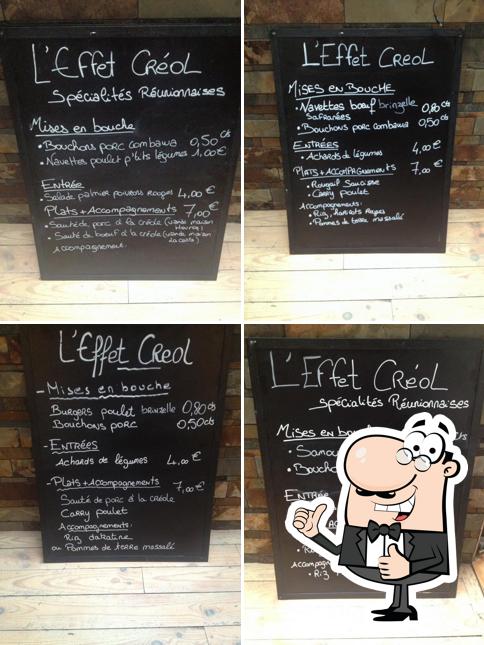 L'Effet CréoL
Spécialités Réunionnaises
Mises en bouche
• Bouchons porc combawa 0,50 cts
• Navettes poulet p'tits légumes 1,00€
Entrée
• Salade palmier poivrons rouges 4,00€
Plats + Accompagnements 7,00€
• Sauté de porc à la créole (viande maison
• Sauté de boeuf à la créole (viande maison
Accompagnement.
L'Effet CréoL
Mises en Bouche
• Navettes bœuf brinzelle 0,80 cts
Safranées
• Bouchons porc combawa 0,50 cts
Entrées 4,00€
• Achards de légumes
Plats + Accompagnements 7,00€
• Rougail Saucisse
• Carry poulet
Accompagnements:
• Riz, haricots rouges
• Pommes de terre massalé
L'Effet Creol
- Mises en bouche
Burgers poulet brinzelle 0,80 cts
Bouchons porc 0,50 cts
- Entrées
Achards de légumes 4,00€
- Plats + Accompagnements 7,00€
Sauté de porc à la créole
Carry poulet
Accompagnements:
Riz
ou Pommes de terre massalé
L'Effet CréoL
Spécialités Réunionnaises
Mises en
Entrée
• Riz